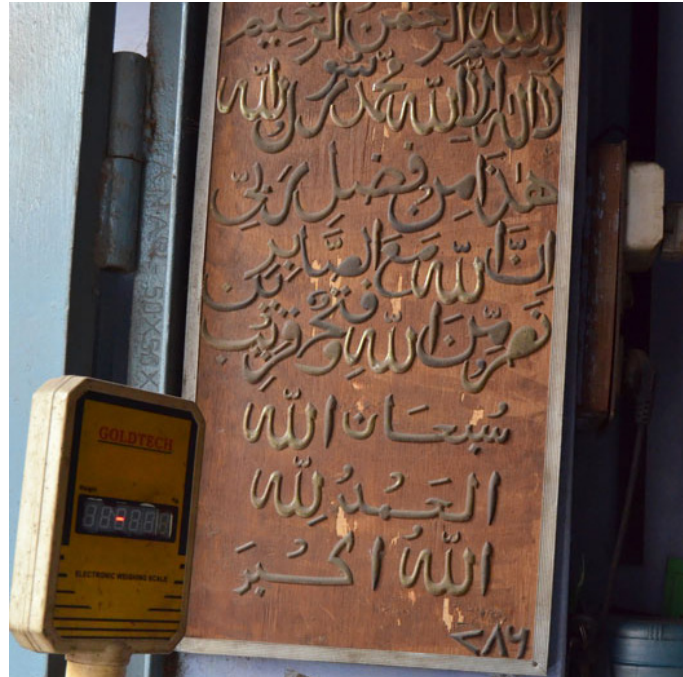 بسم الله الرحمن الرحيم
لا اله الا الله محمد رسول الله
هٰذَا مِن فَضْلِ رَبِّی
اِنَّ اللّٰهَ مَعَ الصَّابِرِین
نَصْرٌ مِّنَ اللّٰهِ وَفَتْحٌ قَرِیْب
سُبْحَانَ اللّٰه
الْحَمْدُ لِلّٰه
اللّٰهُ اَکْبَر
٧٨٦
GOLDTECH
Weight
Kg
ELECTRONIC WEIGHING SCALE